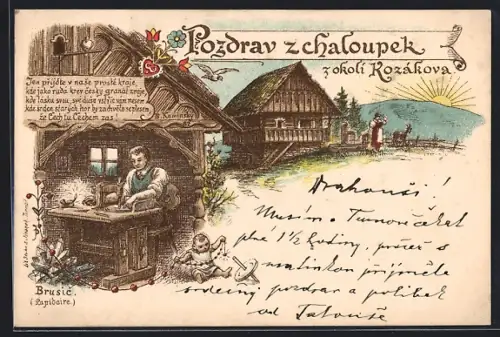 Pozdrav z chaloupek
z okolí Kozákova.
Jen přijďte v naše prosté kraje,
kde jako rudá krev český granát zraje,
kde lásku svou, své duše vstříc vám nesem
kde srdcem starých hor by zachvělo se plesem,
že Čech tu Čechem zas!
B. Kaminský
Brusič.
(Lapidaire.)
Drahouši!
Musím v Turnově čekat
plné 1 1/2 hodiny, pročež s
maminkou přijměte
srdečný pozdrav a polibek
od Tatouše